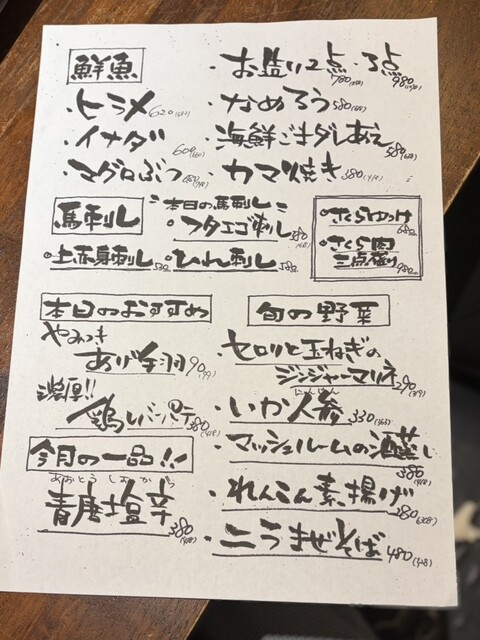 鮮魚
・お盛り2点・3点
780 980
・ヒラメ 620
・なめろう 580
・イナダ 600
・海鮮ごまダレあえ 580
・マグロぶつ
・カマ焼き 380
馬刺し
本日の馬刺し
・フタエゴ刺し 580
・上赤身刺し 530
・ひれ刺し 580
・さくらゆっけ 680
・さくら肉
三点盛り 980
本日のおすすめ
やみつき
あげ手羽 90(99)
濃厚!!
鶏レバーパテ 380(418)
今月の一品!!
あおとうしおから
青唐塩辛 380
旬の野菜
・セロリと玉ねぎの
ジンジャーマリネ 290(319)
にんじん
・いか人参 330(363)
・マッシュルームの酒蒸し 380
・れんこん素揚げ 280(308)
・ニラまぜそば 480(528)